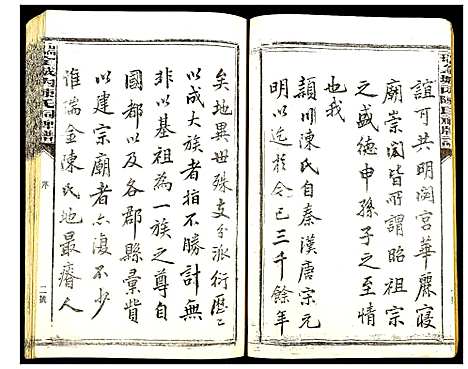 誼可共明閟宮華麗寢
廟崇閎皆所謂昭祖宗
之盛德申孫子之至情
也我
潁川陳氏自秦漢唐宗元
明以迄於今已三千餘年
矣地異世殊支分派衍歷二
以成大族者指不勝計無
非以基祖為一族之尊自
國都以及各郡縣彙貲
以建宗廟者亦復不少
惟瑞金陳氏地最瘠人
序
二號